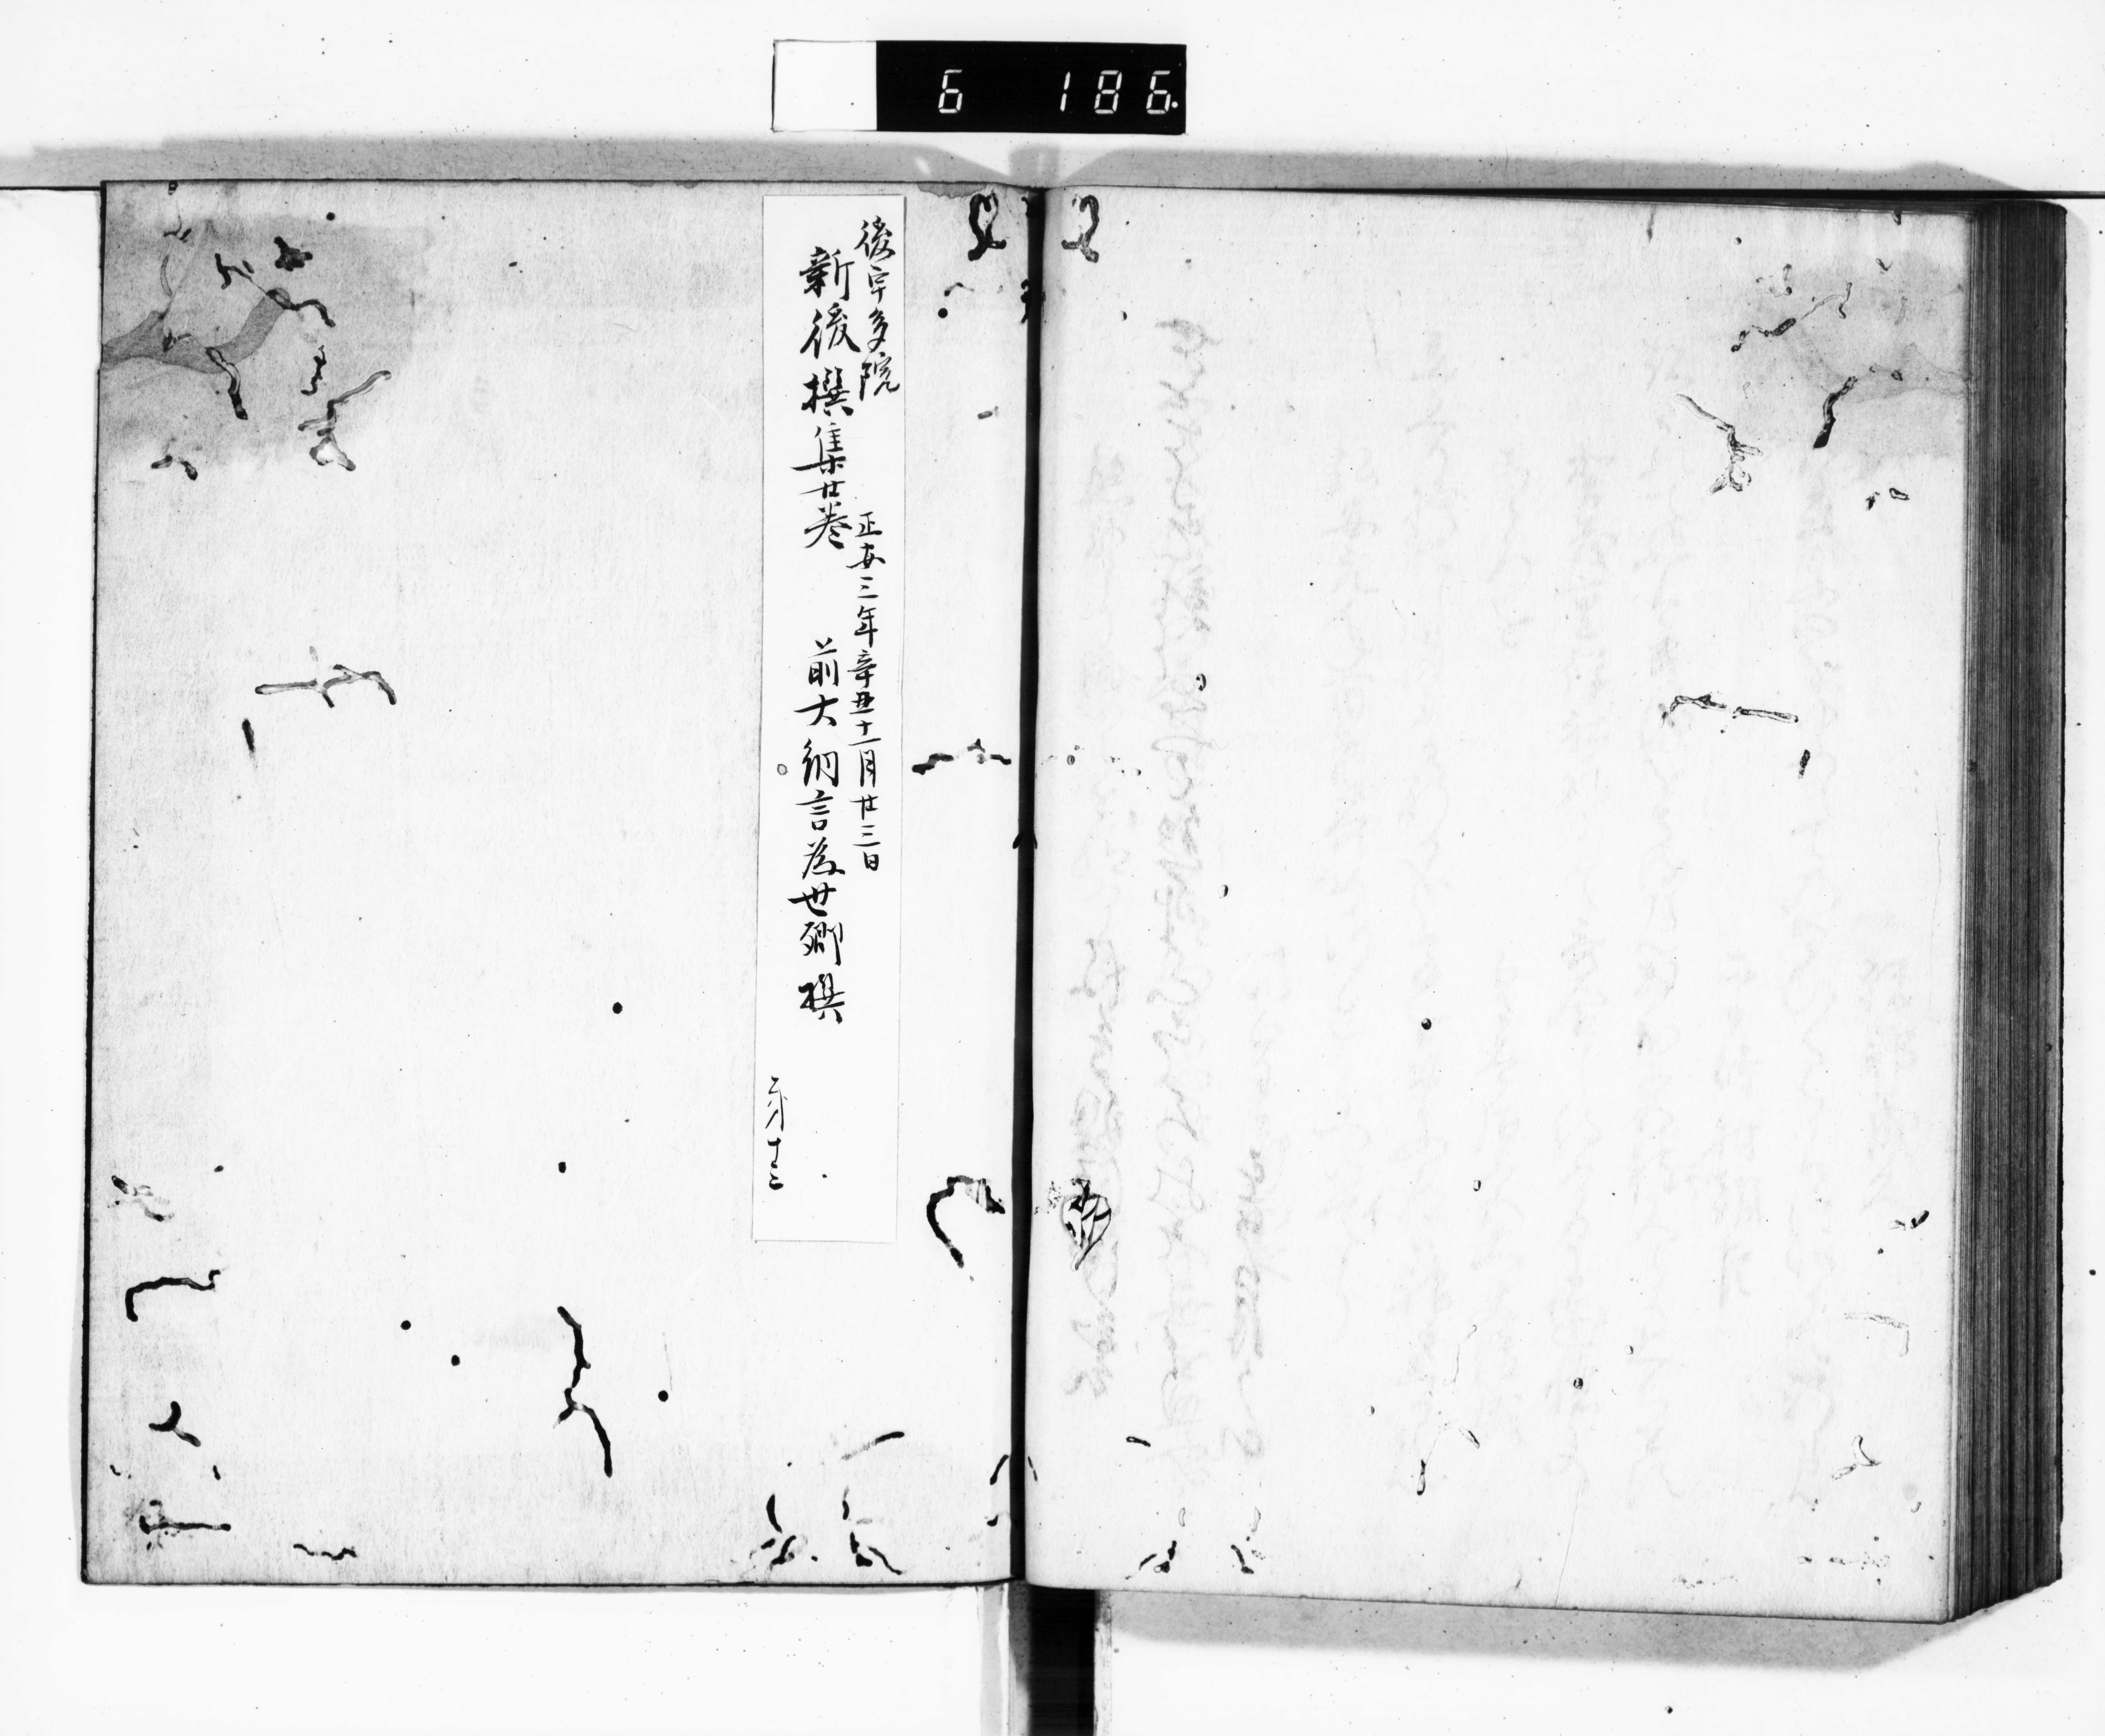 6 186
後宇多院
正安三年辛丑十一月廿三日
新後撰集廿巻 前大納言為世卿撰
十三